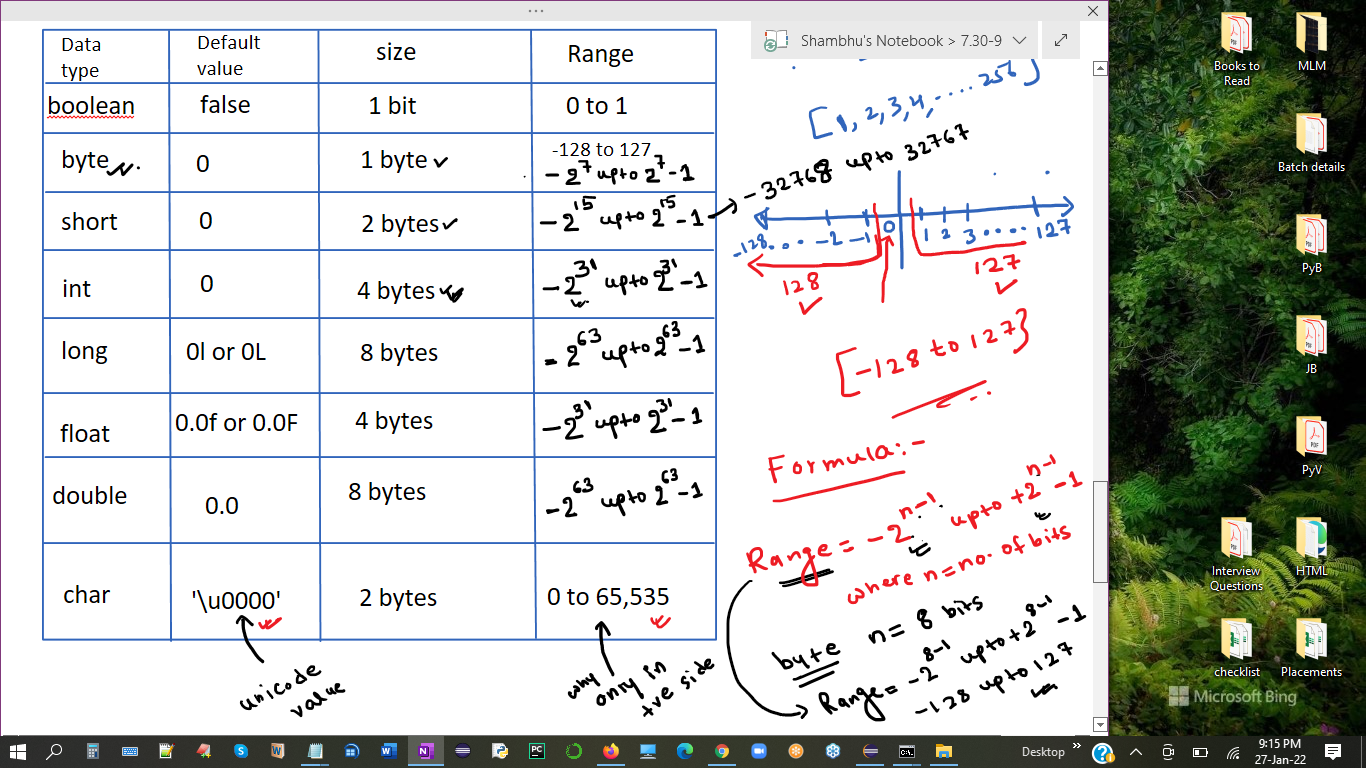 Shambhu's Notebook > 7.30-9
Data type
Default value
size
Range
boolean
false
1 bit
0 to 1
byte
0
1 byte
-128 to 127
-2^7 upto 2^7-1
short
0
2 bytes
-2^15 upto 2^15-1
int
0
4 bytes
-2^31 upto 2^31-1
long
0l or 0L
8 bytes
-2^63 upto 2^63-1
float
0.0f or 0.0F
4 bytes
-2^31 upto 2^31-1
double
0.0
8 bytes
-2^63 upto 2^63-1
char
'\u0000'
2 bytes
0 to 65,535
unicode
value
why
only in
+ve side
[1, 2, 3, 4, .... 256]
-32768 upto 32767
-128 ... -2 -1 0 1 2 3 .... 127
128
127
[-128 to 127]
Formula:-
Range = -2^n-1 upto +2^n-1 -1
where n = no. of bits
byte n = 8 bits
Range = -2^8-1 upto +2^8-1 -1
-128 upto 127
Books to Read
MLM
Batch details
PyB
JB
PyV
Interview Questions
HTML
checklist
Placements
Microsoft Bing
Desktop
9:15 PM
27-Jan-22